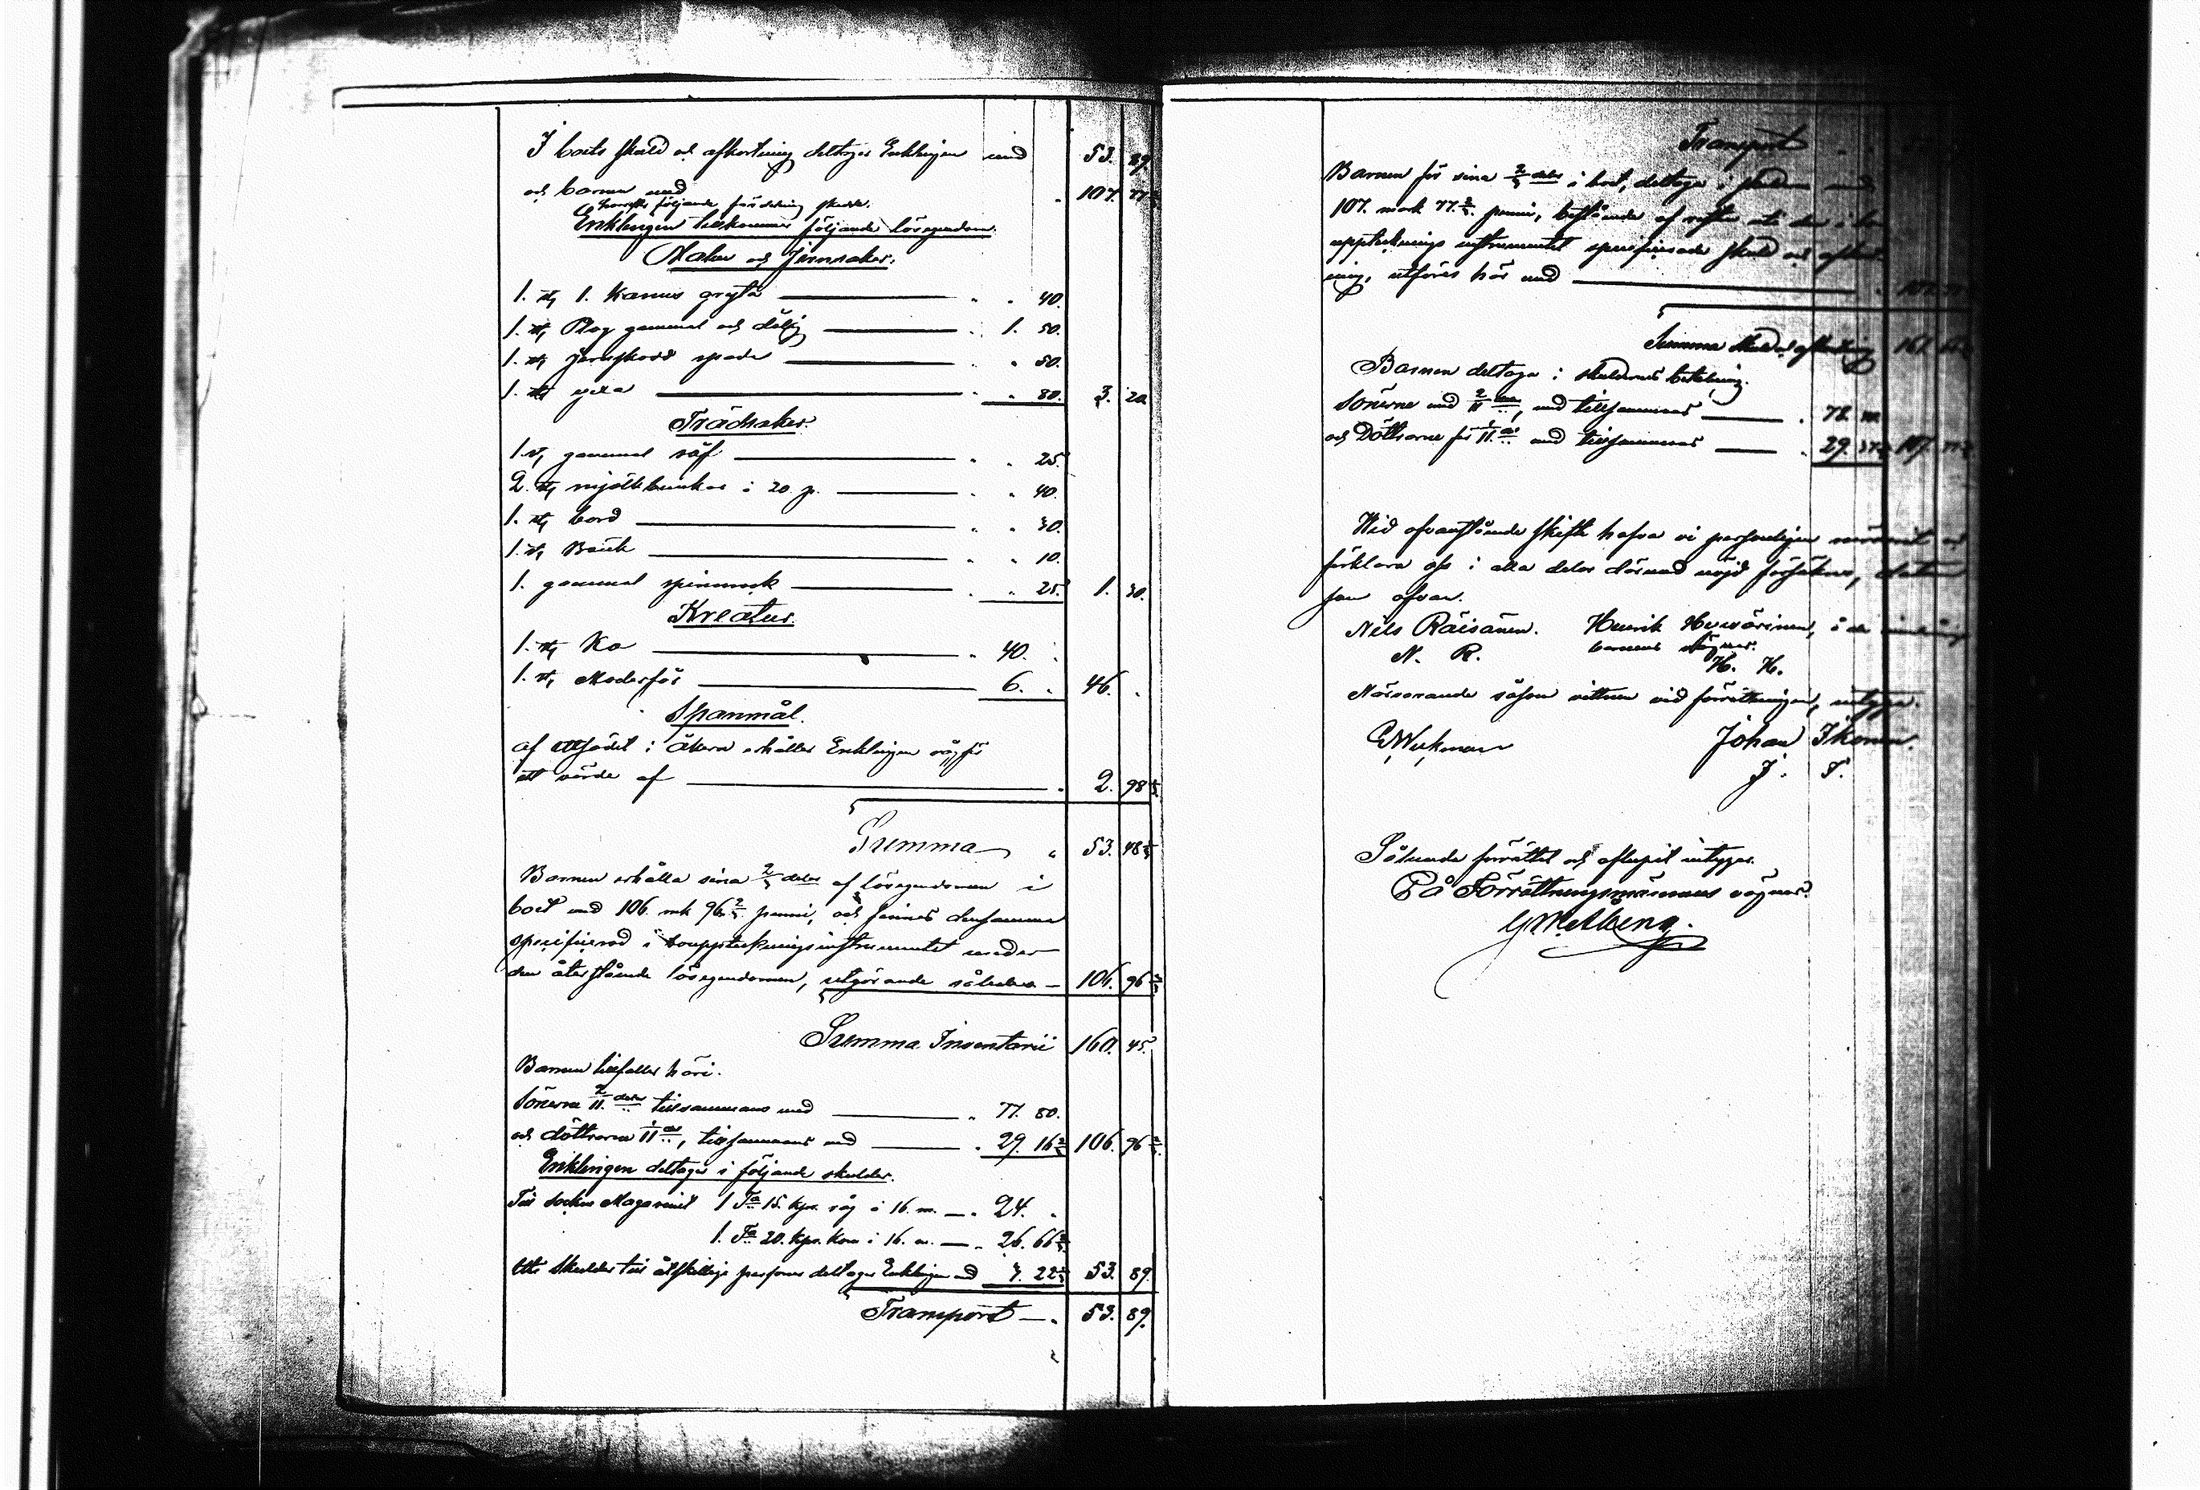 I boets skuld och afkortning deltager Enklingen med 53. 89
och barnen med 107. 77 2/3
hvarefter följande fördelning skedde.
Enklingen tillkommer följande lösegendom.
Malm och Jernsaker.
1. st. 1. kannus gryta — " " 40.
1. st. Plog gammal och dålig — " 1. 50.
1. st. jernskodd spade — " " 50.
1. st. yxa — " " 80. 3. 20
Trädsaker.
1. st. gammal råf — " " 25.
2. st. mjölkbunkar à 20. p. — " " 40.
1. st. bord — " " 30.
1. st. Bänk — " " 10.
1. gammal spinnrock — " " 25. 1. 30.
Kreatur.
1. st. Ko — " 40. "
1. st. Moderfår — 6. " 46. "
Spanmål.
af utsädet i åkern erhåller Enklingen råg för
ett värde af — " 2. 98 1/3
Summa " 53. 48 1/3
Barnen erhålla sina 2/3 delar af lösegendomen i
boet med 106. mk 96 2/3 penni, och finnes densamma
specificerad i bouppteckningsinstrumentet under
den återstående lösegendomen, utgörande således — 106. 96 2/3
Summa Inventarii 160. 45.
Barnen tillfaller häri.
Sönerne 2/11 delar tillsammans med — " 77. 80.
och döttrarna 1/11 del, tillsammans med — " 29. 16 2/3 106. 96 2/3
Enklingen deltager i följande skulder.
Till Sockne Magasinet 1 Ta 15. kpr. råg à 16. m. — " 24. "
1. Ta 20. kpr. korn à 16. m. — " 26. 66 2/3
Uti skulder till åtskillige personer deltager Enklingen med 3. 22 1/3 53. 89.
Transport — " 53. 89.
Transport
Barnen för sina 2/3 delar i boet, deltaga i skulden med
107. mark 77 2/3 penni, bestående af resten uti den i bo
uppteknings instrumentet specificerade skuld och afkort
ning, utföres här med —
Summa skuld och afkortning 161.
Barnen deltaga i skuldernes betalning.
Sönerne med 2/11 del, med tillsammans — " 78.
och Döttrarne för 1/11 del med tillsammans — " 29. 107.
Wid ofvanstående skifte hafva vi personligen närvarit och
förklara oss i alla delar dermed nöjd försäkras, datum
som ofvan.
Nils Räisänen. Henrik Hyvärinen, å de
N. R. barnens vägnar.
H. H.
Närvarande såsom vittnen vid förrättningen, intyga.
G Wickman Johan Ikonen.
J. I.
Sålunda förrättat och aflupit intygar.
På Förrättningsmännens vägnar.
G W Alberg.